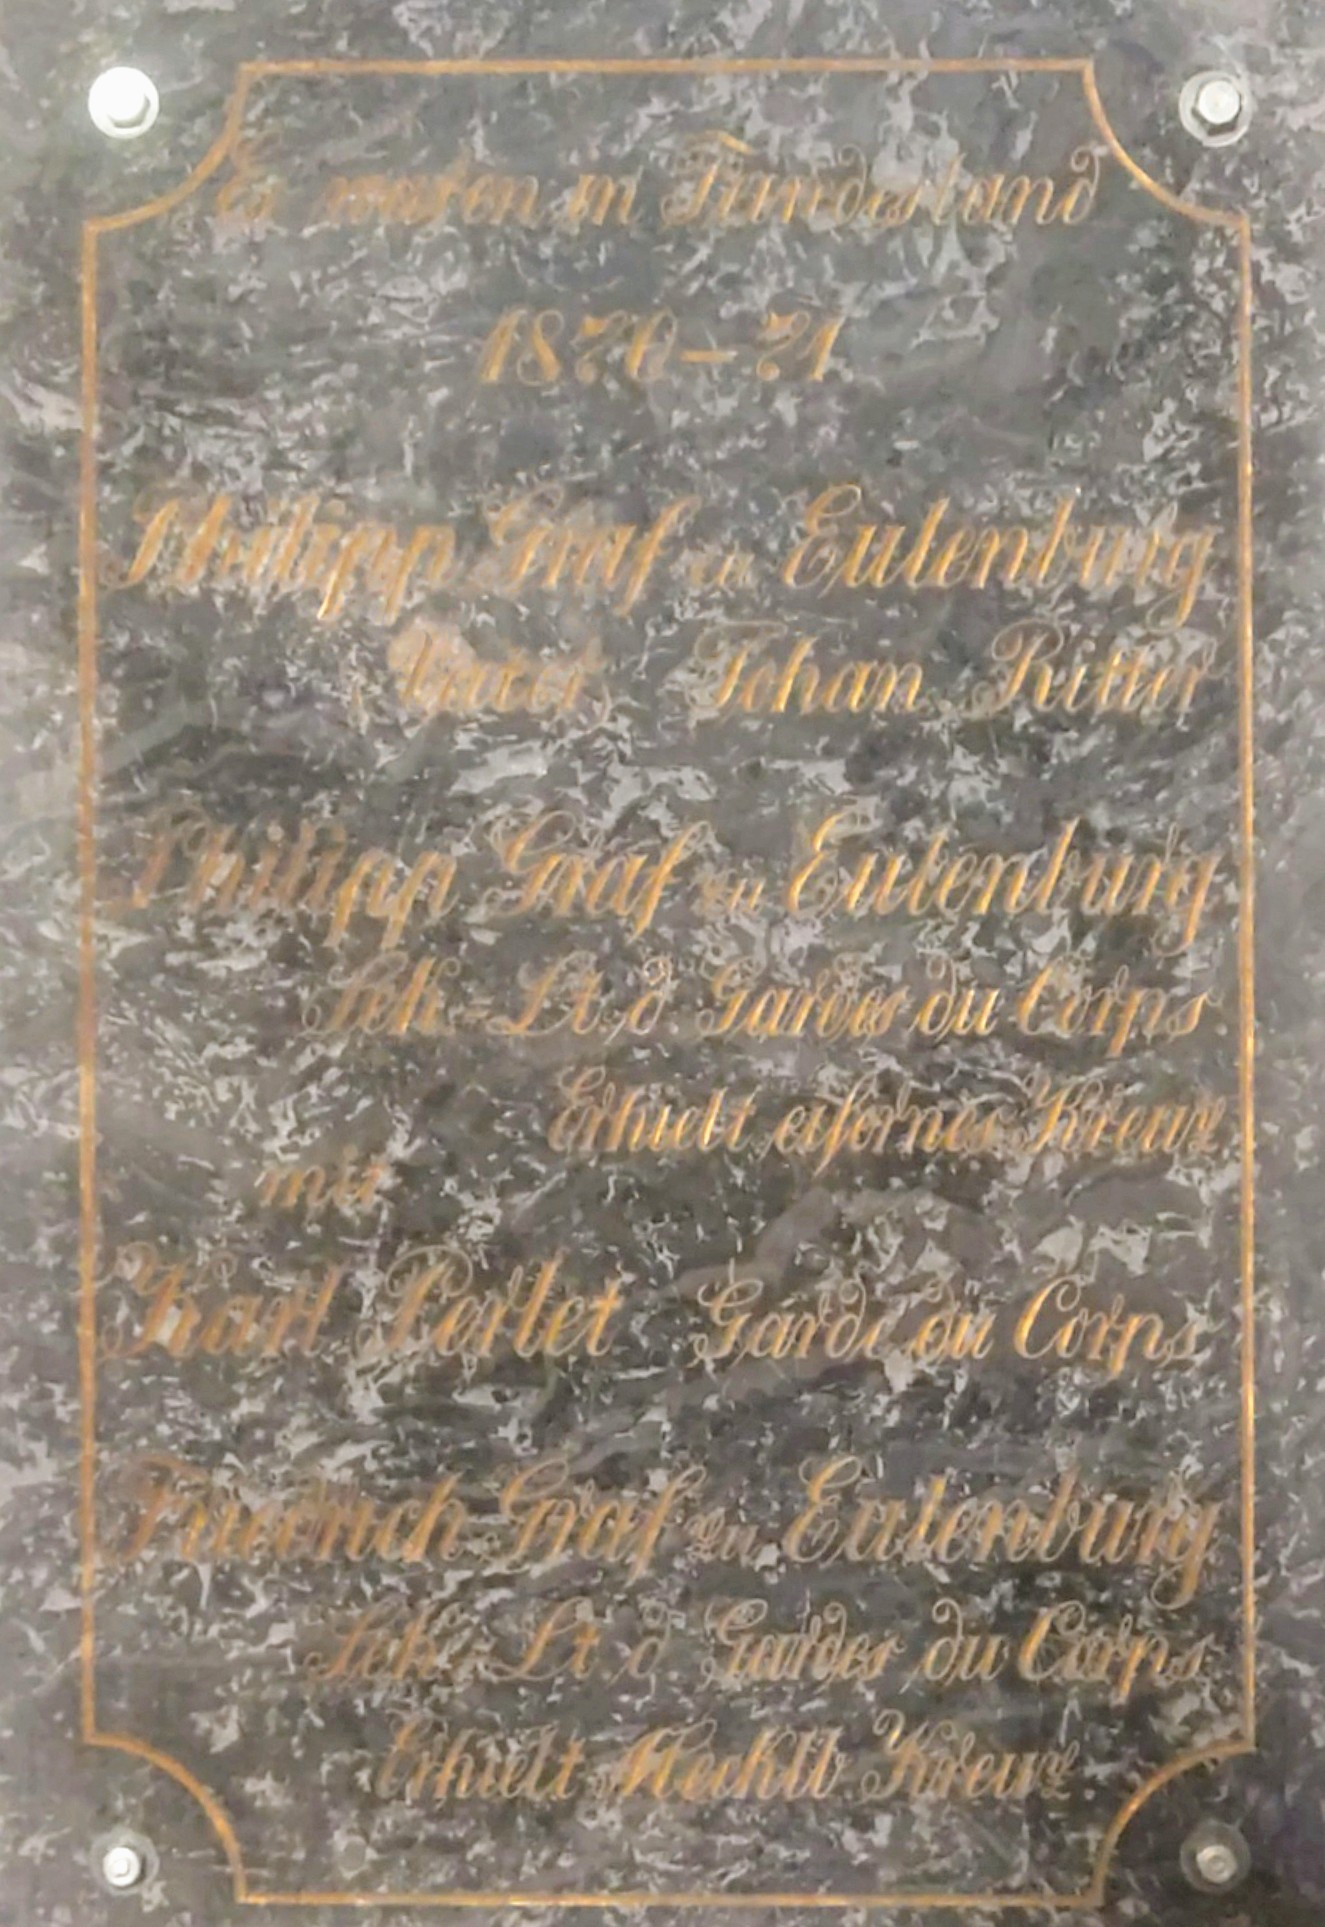 Es waren in Feindesland
1870-71
Philipp Graf zu Eulenburg
Vater Johan Ritter
Philipp Graf zu Eulenburg
Sek-Lt. d. Gardes du Corps
Erhielt eisernes Kreuz
mit
Karl Perlet Garde du Corps
Friedrich Graf zu Eulenburg
Sek. Lt. d. Gardes du Corps
Erhielt Mecklb Kreuz